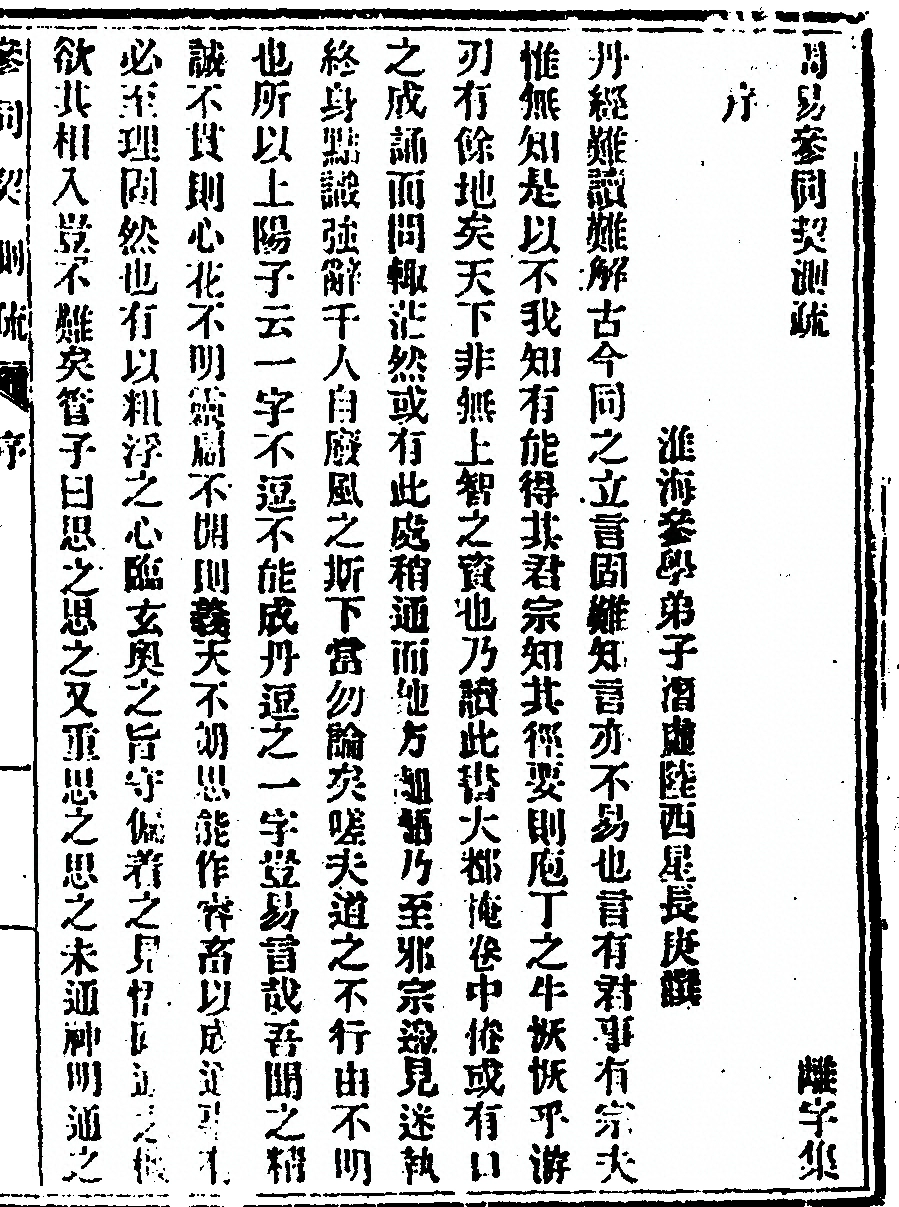 周易參同契測疏 離字集
序
淮海參學弟子潛虛陸西星長庚譔
丹經難讀難解古今同之立言固難知言亦不易也言有君事有宗夫
惟無知是以不我知有能得其君宗知其徑要則庖丁之牛恢恢乎游
刃有餘地矣天下非無上智之資也乃讀此書大都掩卷中倦或有口
之成誦而問輙茫然或有此處稍通而他方齟齬乃至邪宗邉見迷執
終身點識強辭千人自廢風之斯下當勿論矣嗟夫道之不行由不明
也所以上陽子云一字不逗不能成丹逗之一字豈易言哉吾聞之精
誠不貫則心花不明靈扃不開則義天不朗思能作睿畜以成
必至理固然也有以粗浮之心臨玄奧之旨守偏着之見
欲其相入豈不難矣管子曰思之思之又重思之思之未通神明通之
參同契測疏 序